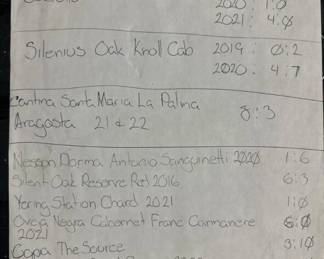 2020: 1:0
2021: 4:0
Silenius Oak Knoll Cab 2019: 0:2
2020: 4:7
Cantina Santa Maria La Palma 8:3
Aragosta 21 & 22
Nessun Dorma Antonio Sanguinetti 2020 1:6
Silent Oak Reserve Red 2016 6:3
Yering Station Chard 2021 1:0
Oveja Negra Cabernet Franc Carmanere 6:0
2021
Copa The Source 3:10